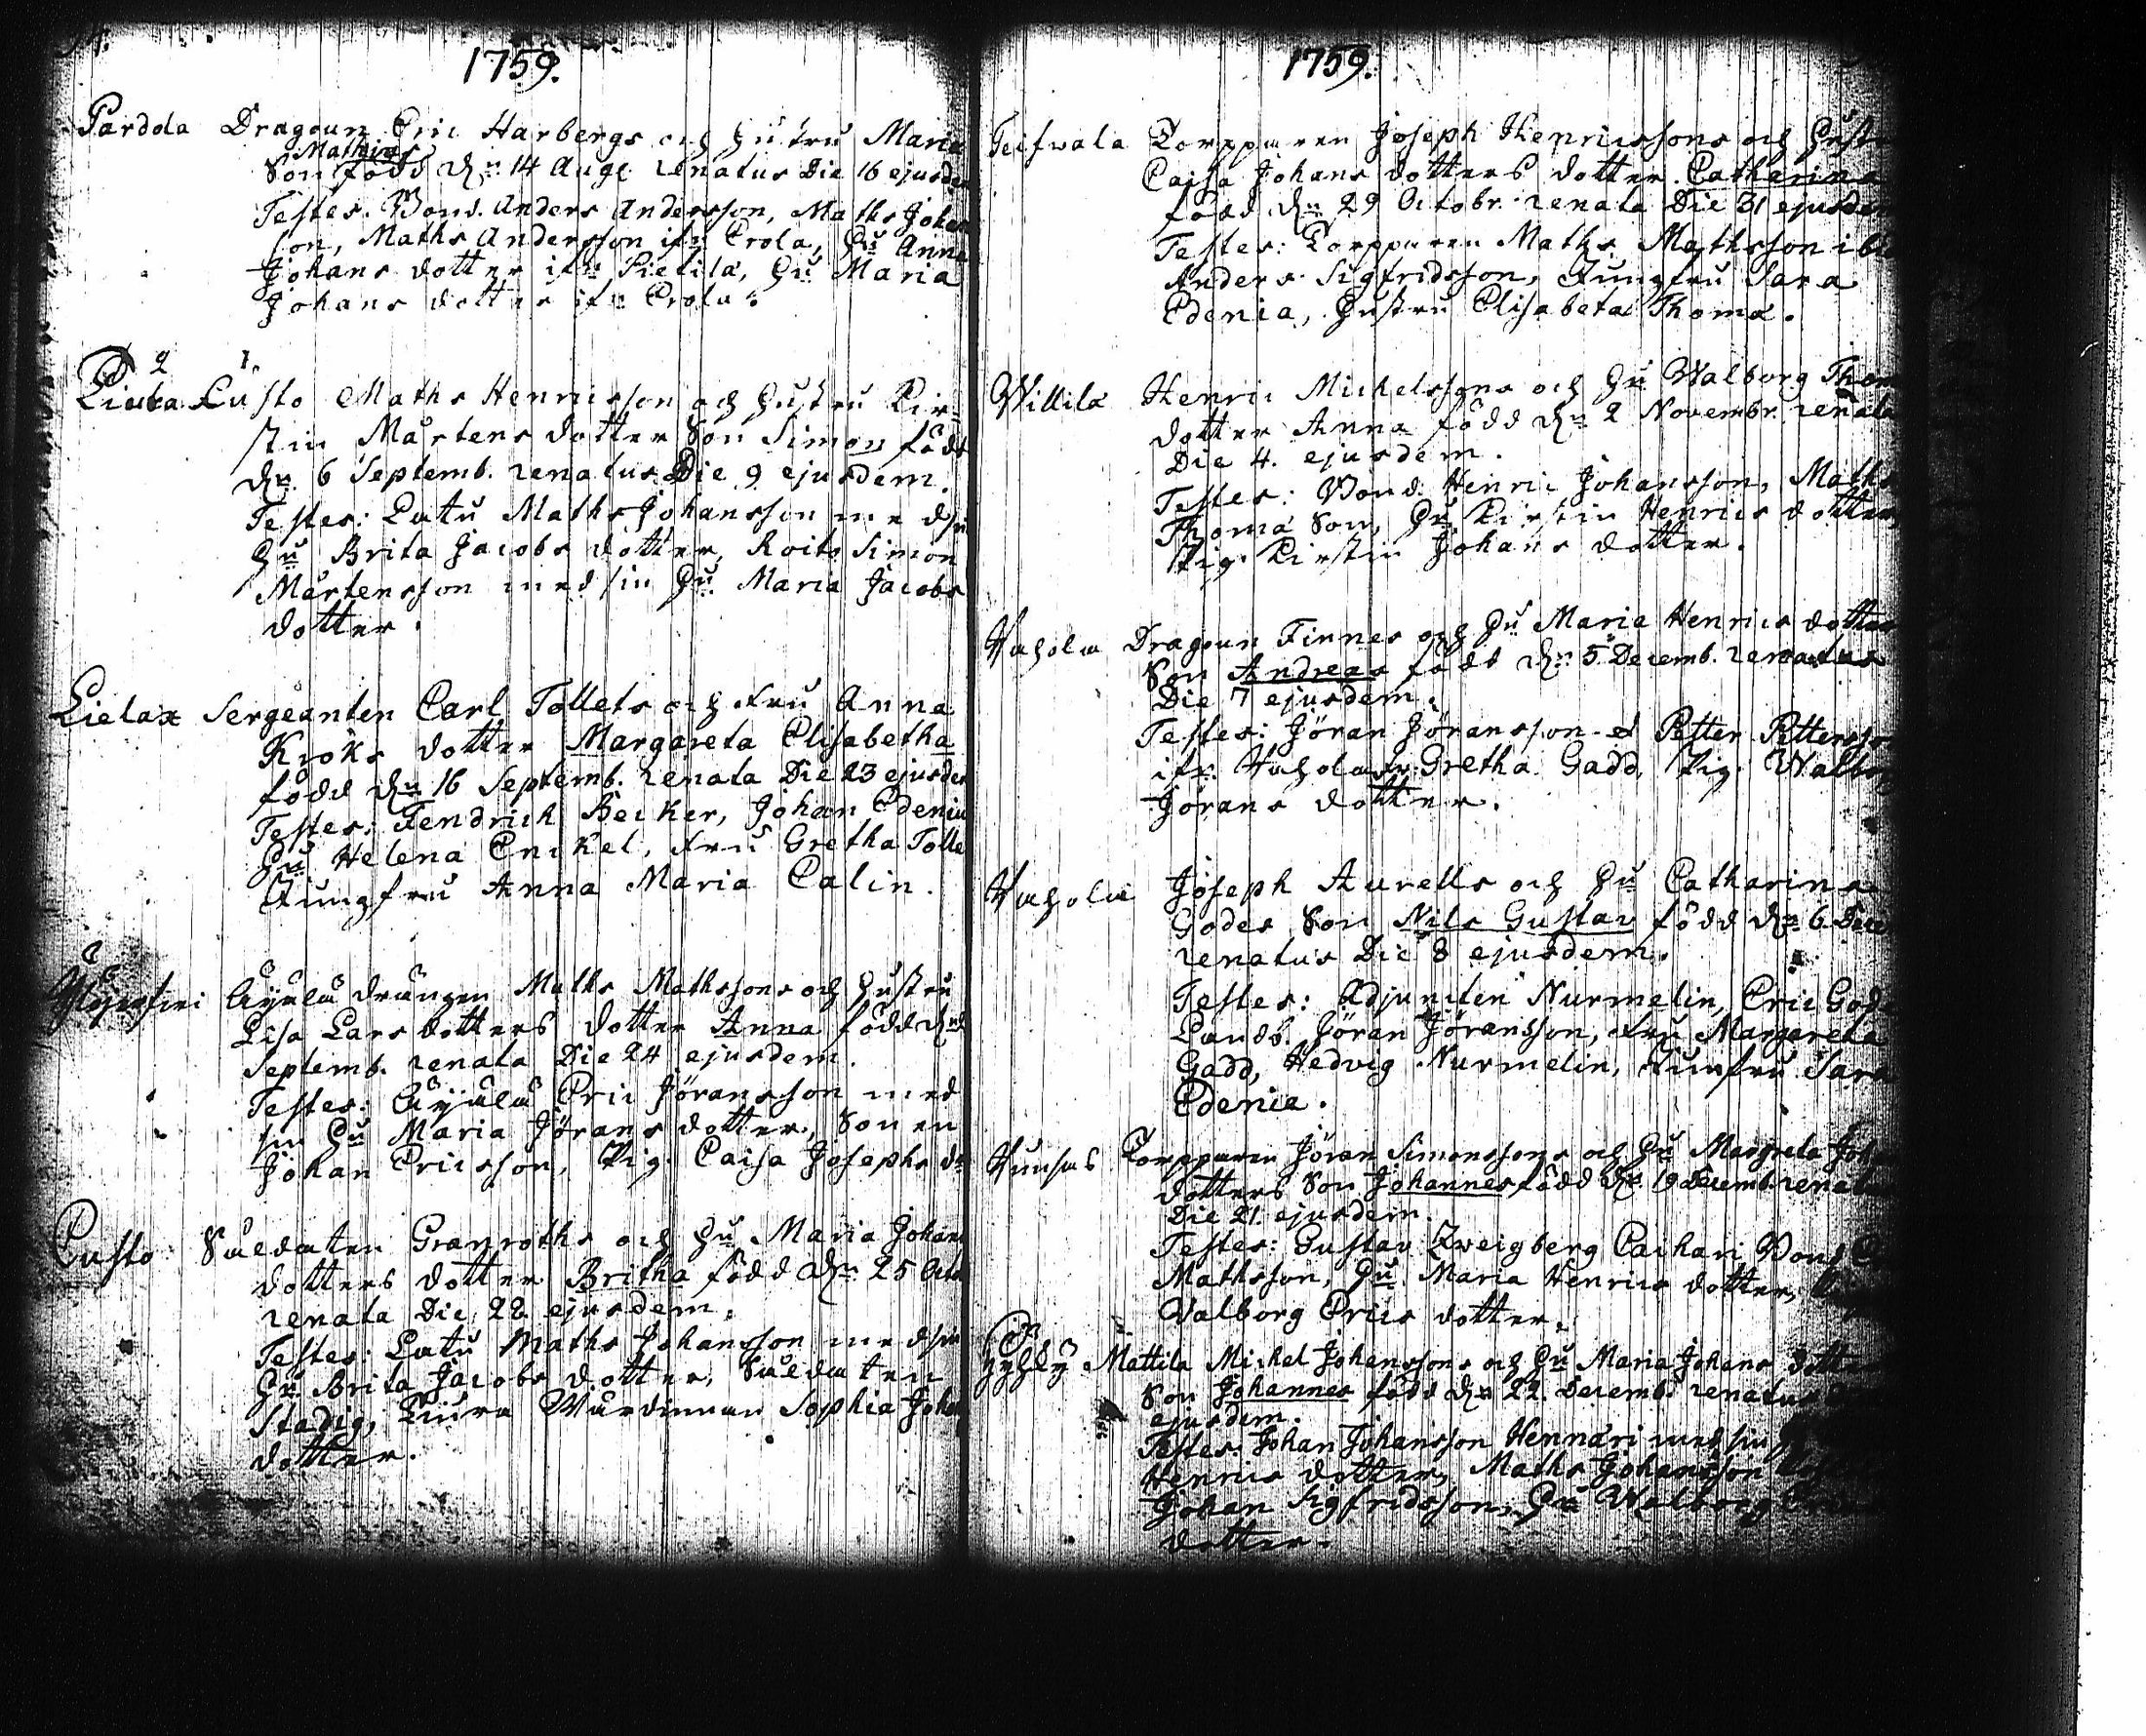 1759.
Pardola Dragoun Eric Harbergs och Hustru Maria
Mathias
Son född d:n 14 Aug: renatus Die 16 ejusdem
Testes. Bond. Anders Andersson, Maths Johans
son, Maths Andersson ifr: Erola, Hu Anna
Johans dotter ifr: Pietilä, Hu Maria
Johans dotter ifr: Erola.
2 1
Custo Maths Henricsson och Hustru Kir-
stin Mårtens dotter Son Simon född
d:n 6 Septemb. renatus Die 9 ejusdem.
Testes: Latu Maths Johansson med sin
Hu Brita Jacobs dotter, Roito Simon
Mårtensson med sin Hu. Maria Jacobs
dotter.
Lielax Sergeanten Carl Tollets och Fru Anna
Kroks dotter Margareta Elisabetha
född d:n 16 Septemb. renata Die 23 ejusdem
Testes: Fendrich Becker, Johan Edenius
Hu Helena Enckel, Fru Gretha Tolle
Jungfru Anna Maria Calin.
Äyälä drängen Maths Mathssons och Hustru
Lisa Lars dotters dotter Anna född d:n
Septemb. renata Die 24 ejusdem.
Testes: Äyälä Eric Jöransson med
sin Hu Maria Jörans dotter, Sonen
Johan Ericsson, Pig. Caisa Josephs do
Custo Saldaten Granroths och Hu Maria Johans
dotters dotter Britha född d:n 25
renata Die 28 ejusdem.
Testes: Latu Maths Johansson med sin
Hu Brita Jacobs dotter, Saldaten
Stadig, Wärdinnan Sophia Johans
dotter.
1759.
Teifwala Torpparen Joseph Henricssons och Hustru
Caisa Johans dotters dotter Catharina
född d:n 29 Octobr. renata Die 31 ejusdem
Testes: Torpparen Maths Mathsson ibid
Anders Sigfridsson, Jungfru Sara
Edenia, Hustru Elisabeta Thoma.
Willilä Henric Michelssons och Hu Walborg Thom
dotter Anna född d:n 2 Novembr. renata
Die 4. ejusdem.
Testes: Bond. Henric Johansson, Maths
Thoma Son, Hu. Kirstin Henrics dotter,
Pig. Kirstin Johans dotter.
Vahola Dragoun Finnes och Hu Maria Henrics dotters
Son Andreas född d:n 5 Decemb. renatus
Die 7 ejusdem.
Testes: Jöran Jöransson et Petter Pettersson
ifr. Vahola, Gretha Gadd, Pig. Walborg
Jörans dotter.
Vahola Joseph Aurells och Hu Catharina
Godes Son Nils Gustav född d:n 6 Dece
renatus Die 8 ejusdem.
Testes: Adjuncten Nurmelin, Eric Gode
Jöran Jöransson, Fru Margareta
Gadd, Hedvig Nurmelin, Junfru Sara
Edenia.
Torpparen Jöran Simonssons och Hu Margreta Joh
dotters Son Johannes född d:n 19 Decemb. renatus
Die 21. ejusdem
Testes: Gustav Zweigberg Caihari Bond
Mathsson, Hu Maria Henrics dotter,
Valborg Erics dotter.
Mattila Michel Johanssons och Hu Maria Johans dotter
Son Johannes född d:n 22. Decemb. renatus
ejusdem.
Testes: Johan Johansson Hennari med sin
Henrics dotter, Maths Johansson
Johan Sigfridsson, Hu Walborg
dotter.